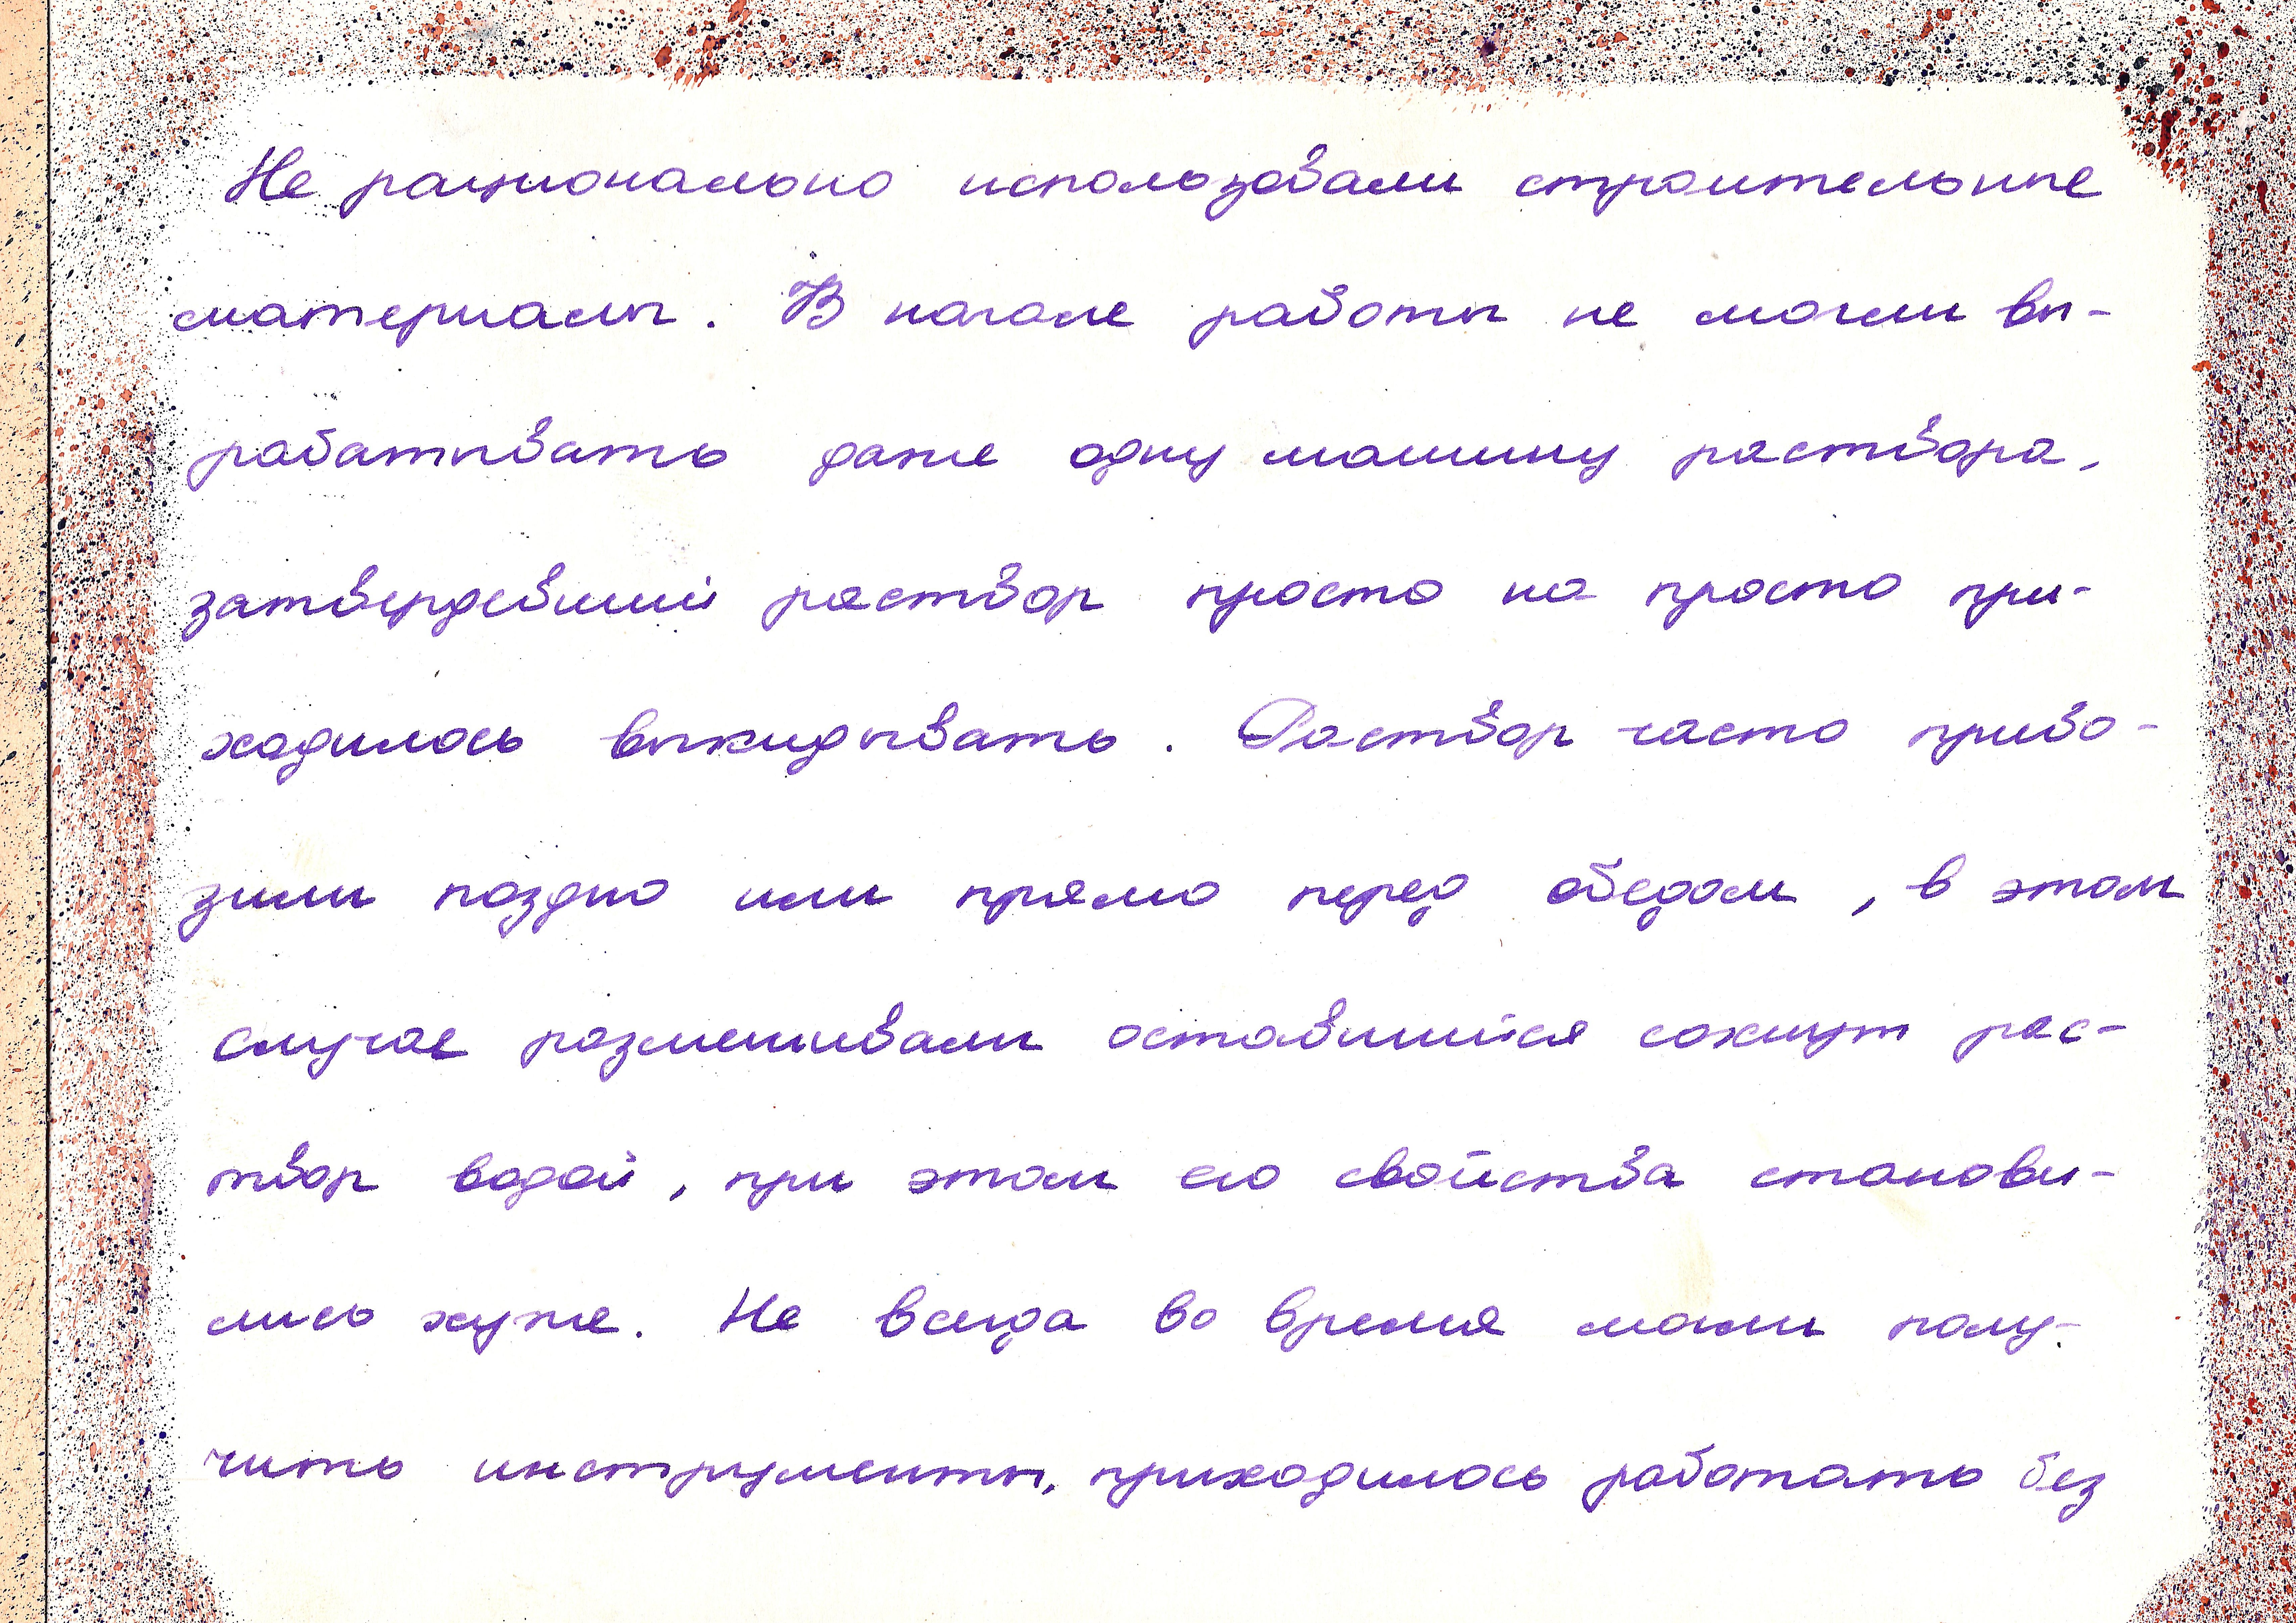 Не рационально использовали строительные
материалы. В начале работы не могли вы-
рабатывать даже одну машину раствора,
затвердевший раствор просто на просто при-
ходилось выкидывать. Раствор часто приво-
зили поздно или прямо перед обедом, в этом
случае размешивали оставшийся сохнут рас-
твор водой, при этом его свойства станови-
лись хуже. Не всегда во время могли полу-
чить инструменты, приходилось работать без